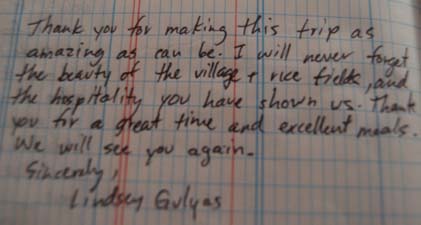 Thank you for making this trip as
amazing as can be. I will never forget
the beauty of the village + rice fields, and
the hospitality you have shown us. Thank
you for a great time and excellent meals.
We will see you again.
Sincerely,
Lindsey Gulyas